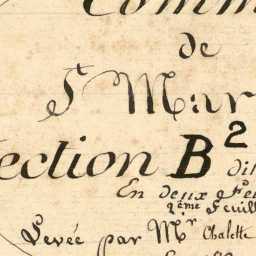 Comm
de
St. Mar
ection B2 dit
En deux Feu
2ème Feuill
Levée par Mr. Chalette